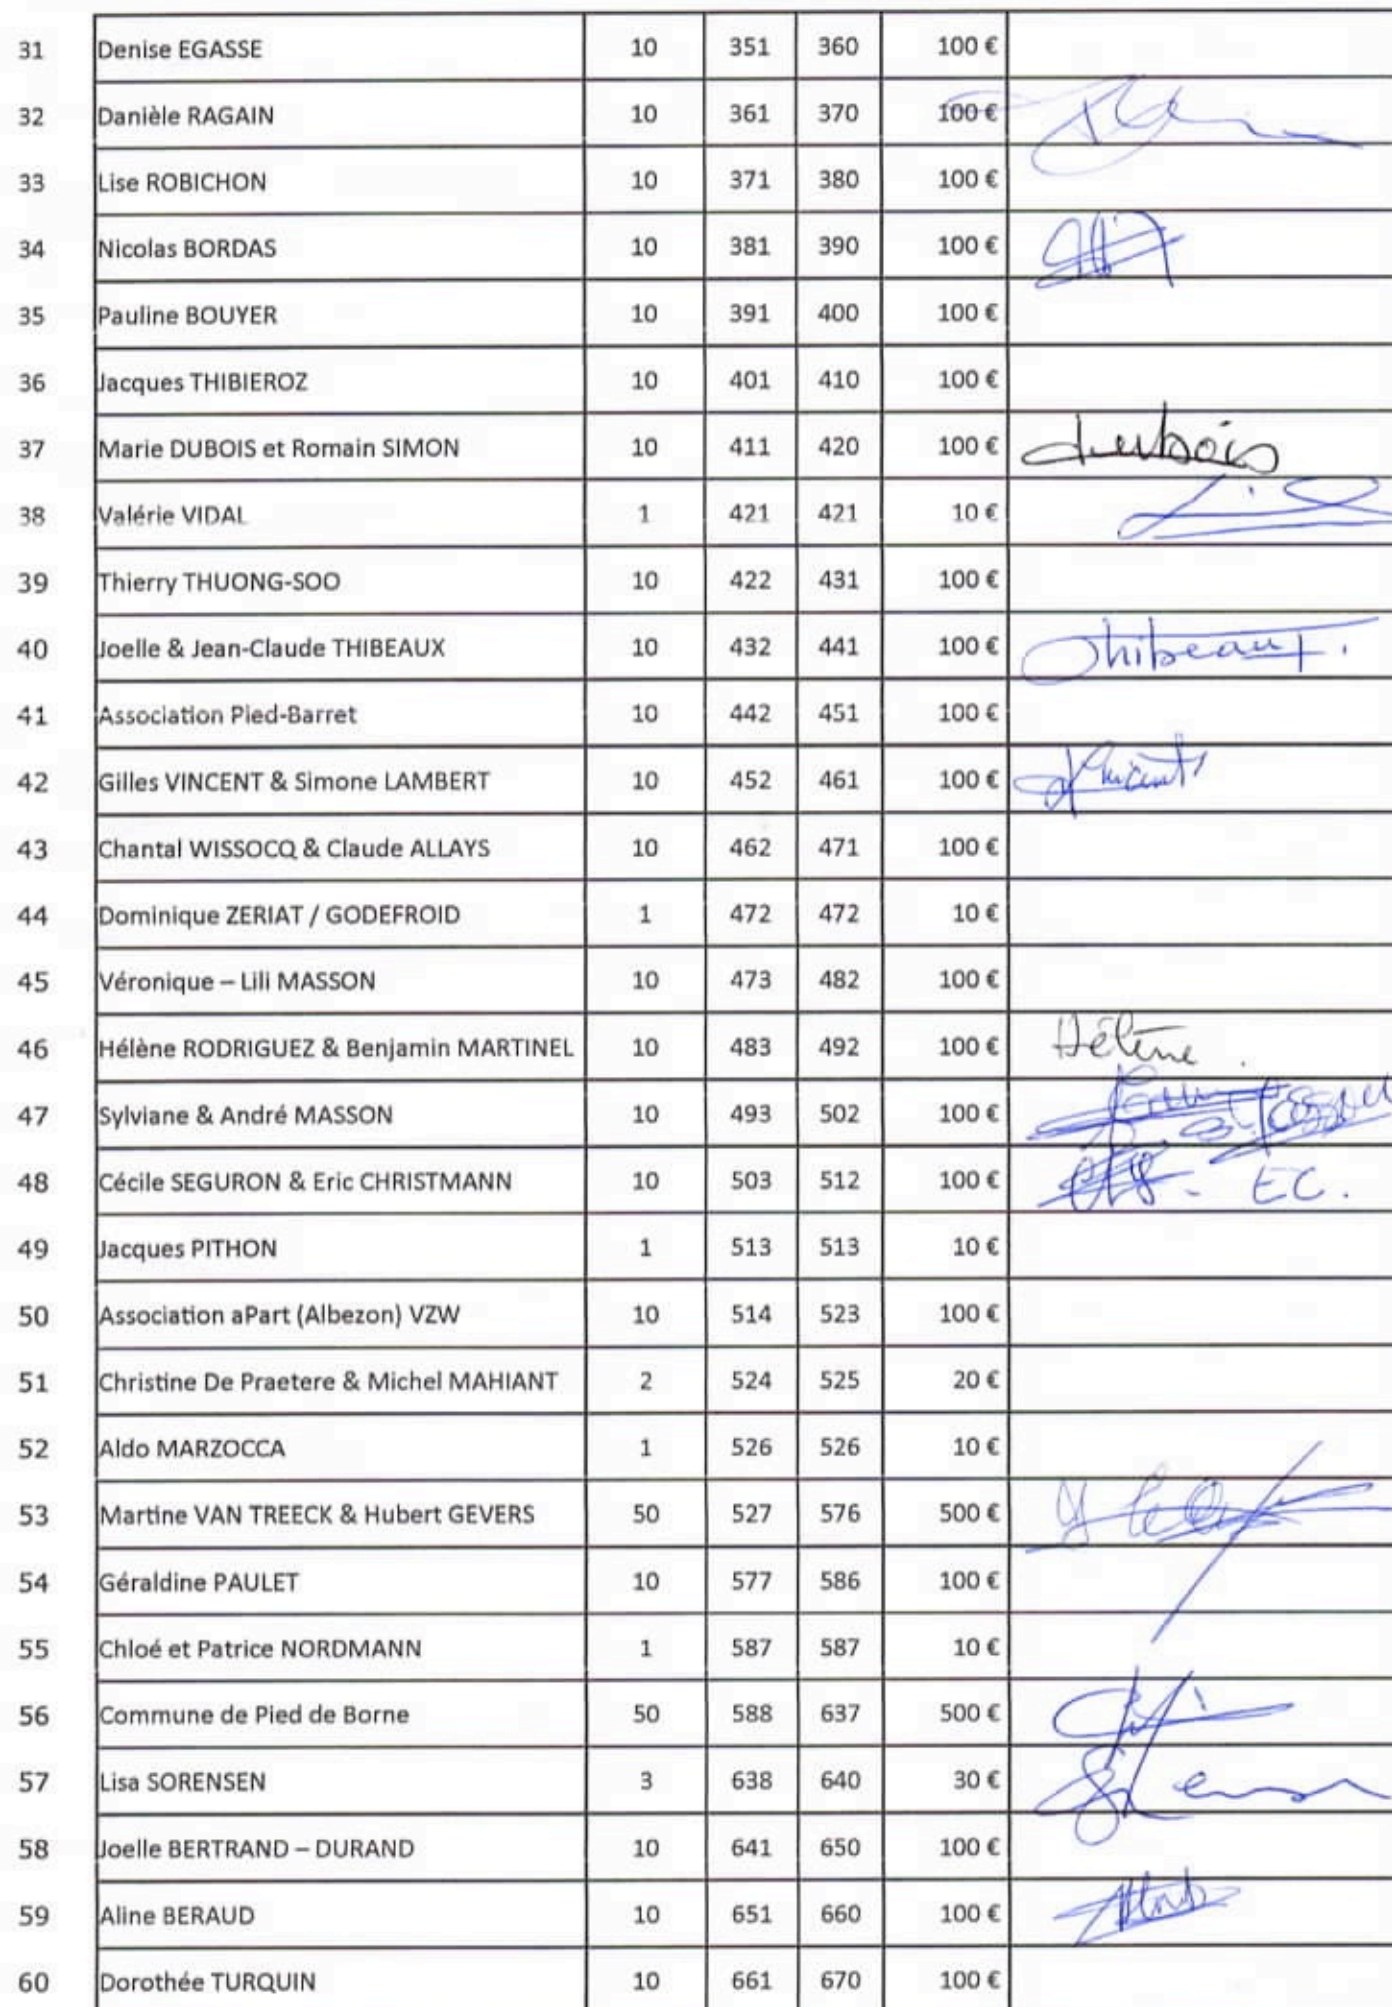 31 Denise EGASSE 10 351 360 100 €
32 Danièle RAGAIN 10 361 370 100 €
33 Lise ROBICHON 10 371 380 100 €
34 Nicolas BORDAS 10 381 390 100 €
35 Pauline BOUYER 10 391 400 100 €
36 Jacques THIBIEROZ 10 401 410 100 €
37 Marie DUBOIS et Romain SIMON 10 411 420 100 € dubois
38 Valérie VIDAL 1 421 421 10 €
39 Thierry THUONG-SOO 10 422 431 100 €
40 Joelle & Jean-Claude THIBEAUX 10 432 441 100 € Thibeaux.
41 Association Pied-Barret 10 442 451 100 €
42 Gilles VINCENT & Simone LAMBERT 10 452 461 100 € Vincent
43 Chantal WISSOCQ & Claude ALLAYS 10 462 471 100 €
44 Dominique ZERIAT / GODEFROID 1 472 472 10 €
45 Véronique – Lili MASSON 10 473 482 100 €
46 Hélène RODRIGUEZ & Benjamin MARTINEL 10 483 492 100 € Hélène.
47 Sylviane & André MASSON 10 493 502 100 €
48 Cécile SEGURON & Eric CHRISTMANN 10 503 512 100 € EC.
49 Jacques PITHON 1 513 513 10 €
50 Association aPart (Albezon) VZW 10 514 523 100 €
51 Christine De Praetere & Michel MAHIANT 2 524 525 20 €
52 Aldo MARZOCCA 1 526 526 10 €
53 Martine VAN TREECK & Hubert GEVERS 50 527 576 500 €
54 Géraldine PAULET 10 577 586 100 €
55 Chloé et Patrice NORDMANN 1 587 587 10 €
56 Commune de Pied de Borne 50 588 637 500 €
57 Lisa SORENSEN 3 638 640 30 €
58 Joelle BERTRAND – DURAND 10 641 650 100 €
59 Aline BERAUD 10 651 660 100 €
60 Dorothée TURQUIN 10 661 670 100 €